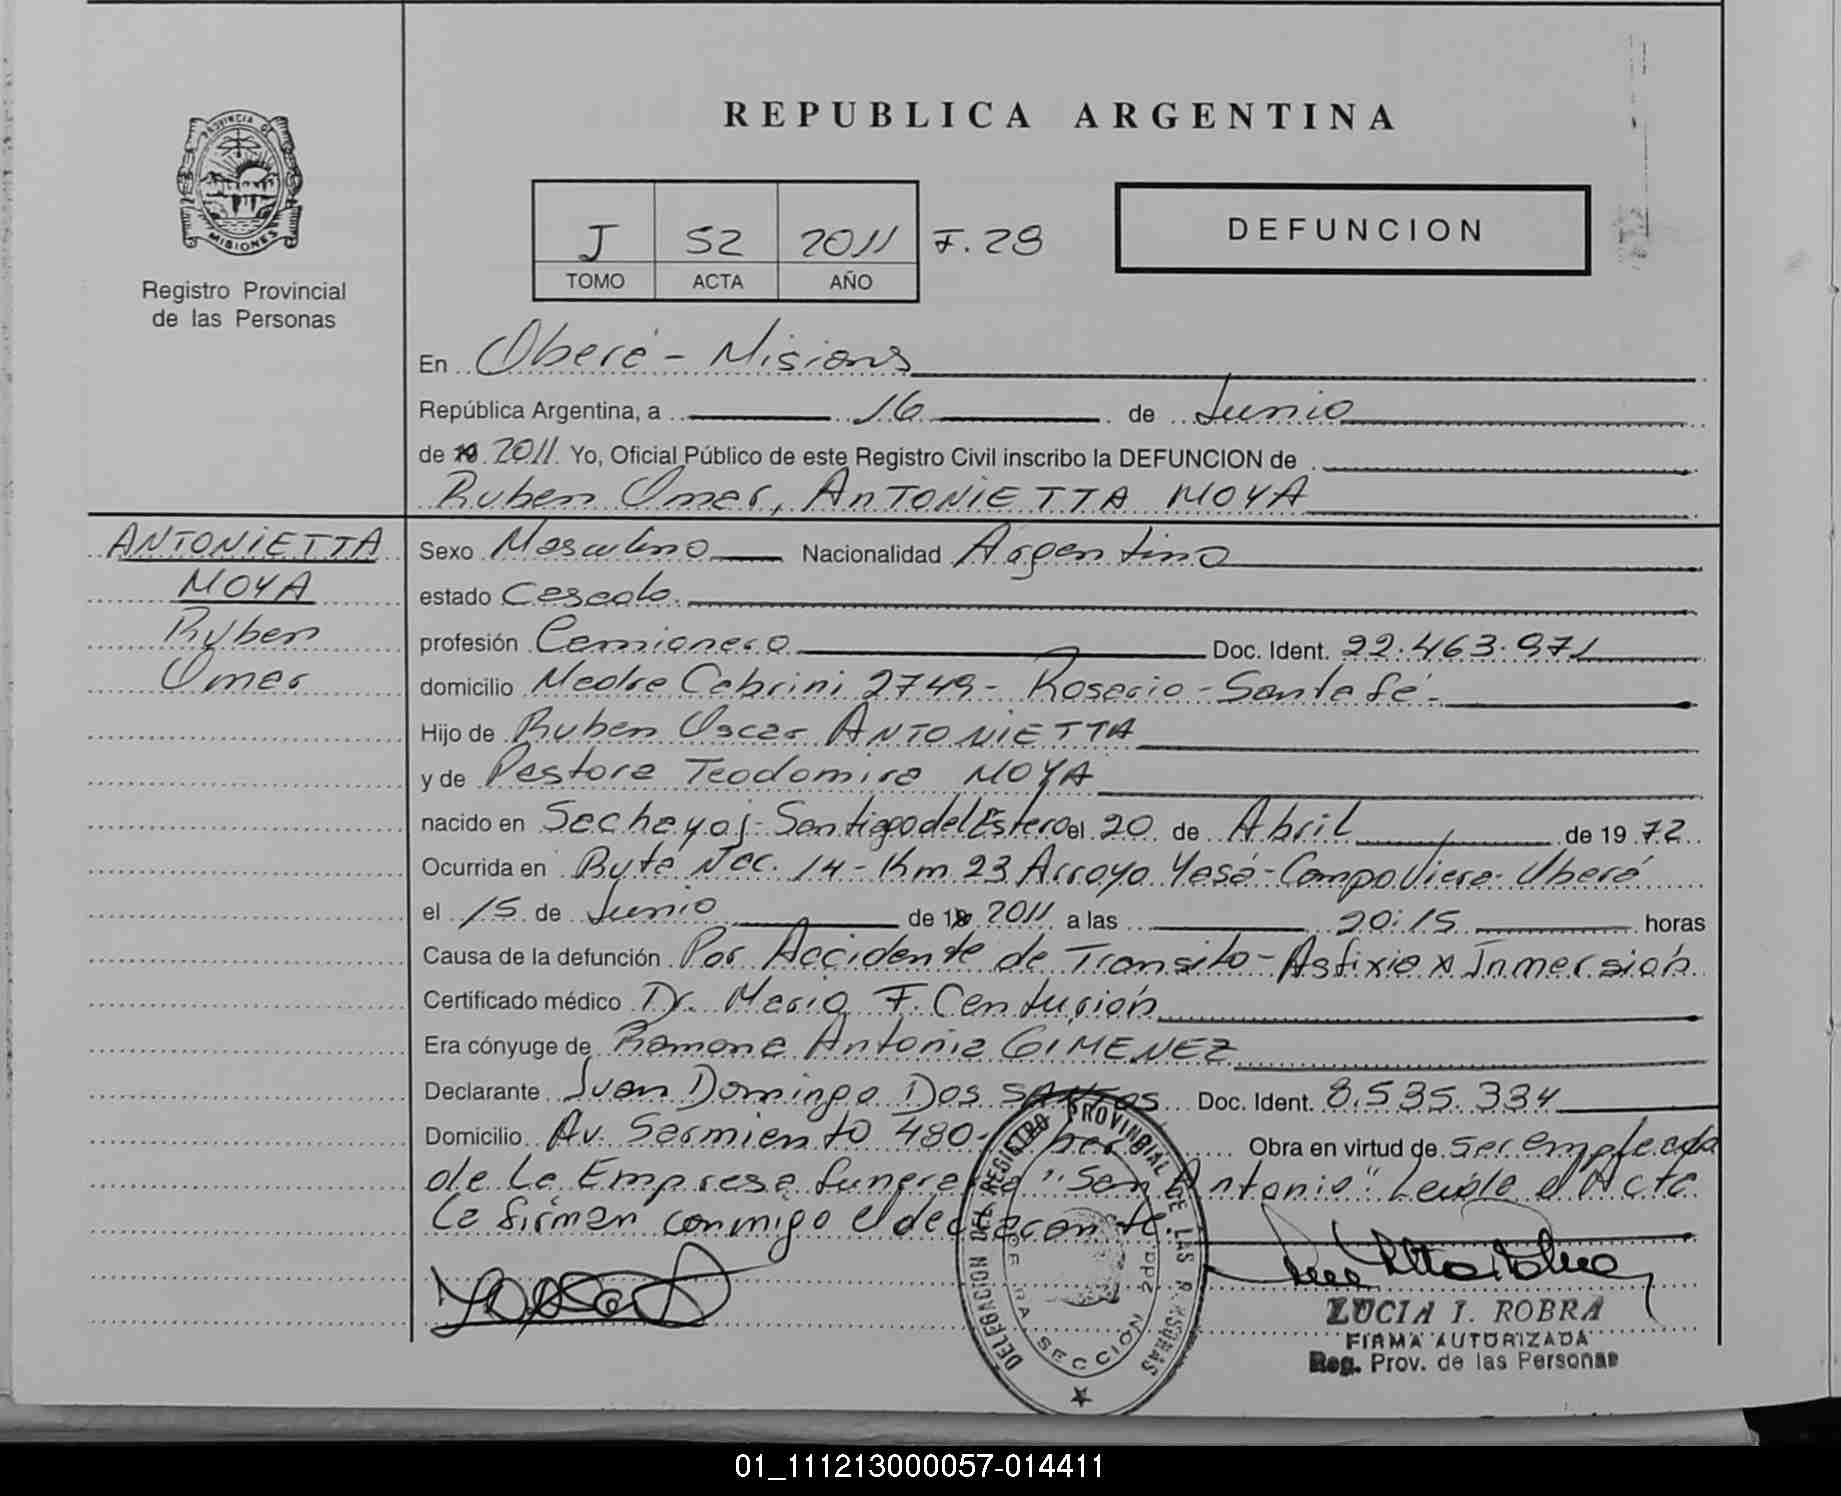 REPUBLICA ARGENTINA
PROVINCIA DE
MISIONES
Registro Provincial
de las Personas
J 52 2011 F. 28
TOMO ACTA AÑO
DEFUNCION
En Oberá - Misiones
República Argentina, a 16 de Junio
de 19 2011 Yo, Oficial Público de este Registro Civil inscribo la DEFUNCION de
Ruben Omar, ANTONIETTA MOYA
ANTONIETTA
MOYA
Ruben
Omar
Sexo Masculino Nacionalidad Argentino
estado Casado
profesión Camionero Doc. Ident. 22.463.971
domicilio Madre Cabrini 2749 - Rosario - Santa fé -
Hijo de Ruben Oscar ANTONIETTA
y de Pastora Teodomira MOYA
nacido en Sachayoj - Santiago del Estero el 20 de Abril de 1972
Ocurrida en Ruta Nac. 14 - Km 23 Arroyo Yasá - Campo Viera - Oberá
el 15 de Junio de 19 2011 a las 20:15 horas
Causa de la defunción Por Accidente de Transito - Asfixia x Inmersión
Certificado médico Dr. Mario F. Centurión
Era cónyuge de Ramona Antonia GIMENEZ
Declarante Juan Domingo Dos SANTOS Doc. Ident. 8.535.334
Domicilio Av. Sarmiento 480 - Oberá Obra en virtud de ser empleado
de la Empresa funeraria "San Antonio" Leída el Acta
la firman conmigo el declarante
DELEGACION DEL REGISTRO PROVINCIAL DE LAS PERSONAS
SECCION
LUCIA I. ROBRA
FIRMA AUTORIZADA
Reg. Prov. de las Personas
01_111213000057-014411